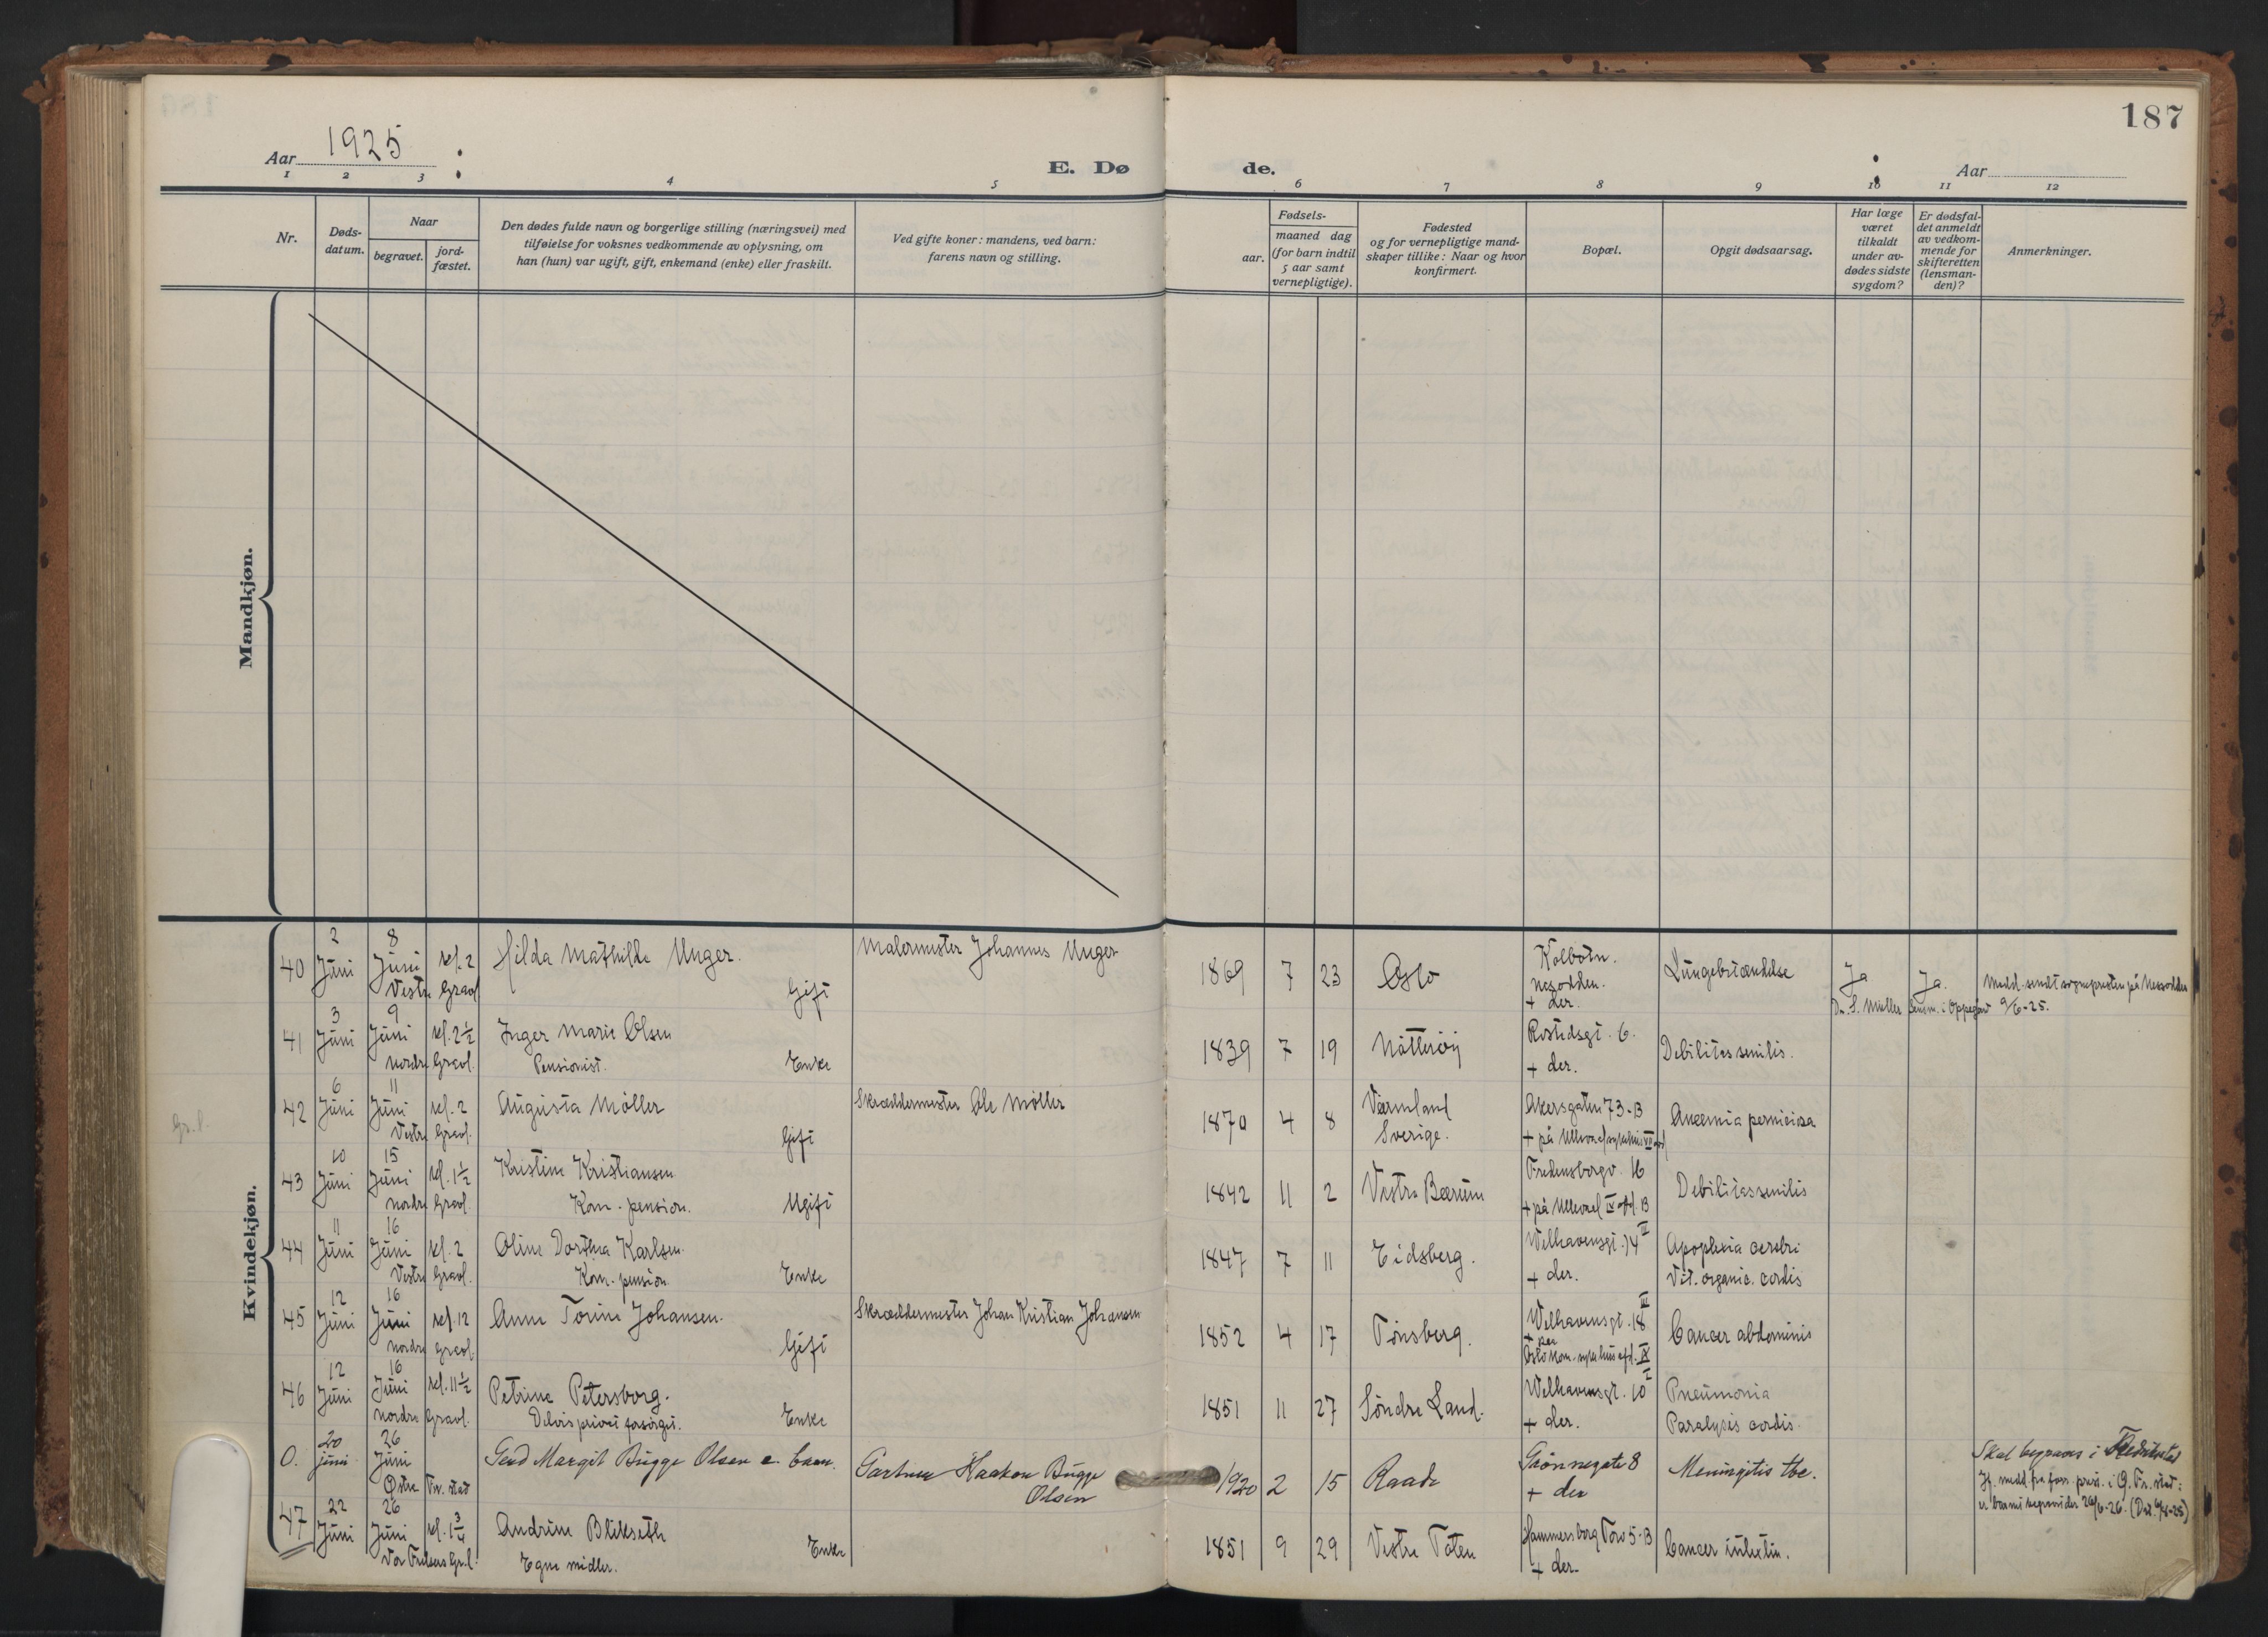 187
Aar 1925
E. Døde.
Aar
1 2 3 4 5 6 7 8 9 10 11 12
Nr.
Døds-
datum.
Naar
begravet.
jord-
fæstet.
Den dødes fulde navn og borgerlige stilling (næringsvei) med
tilføielse for voksnes vedkommende av oplysning, om
han (hun) var ugift, gift, enkemand (enke) eller fraskilt.
Ved gifte koner: mandens, ved barn:
farens navn og stilling.
Fødsels-
aar.
maaned dag
(for barn indtil
5 aar samt
vernepligtige).
Fødested
og for vernepligtige mand-
skaper tillike: Naar og hvor
konfirmert.
Bopæl.
Opgit dødsaarsag.
Har læge
været
tilkaldt
under av-
dødes sidste
sygdom?
Er dødsfal-
det anmeldt
av vedkom-
mende for
skifteretten
(lensman-
den)?
Anmerkninger.
Mandkjøn.
Kvindekjøn.
40 2 Juni 8 Juni kl. 2 Vestre Gravl. Hilda Mathilde Unger. Gift Malermester Johannes Unger 1869 7 23 Oslo Kolbotn. Nesodden. + der. Lungebetændelse Ja Dr. S. Møller Ja. Lensm. i Oppegård Medd. sendt sognepresten på Nessodden 9/6-25.
41 3 Juni 9 Juni kl. 2½ Nordre Gravl. Inger Marie Olsen Pensionist. Enke 1839 7 19 Nøtterøy Rostedsgt. 6. + der. Debilitas senilis.
42 6 Juni 11 Juni kl. 2 Vestre Gravl. Augusta Møller Gift Skræddermester Ole Møller 1870 4 8 Værmland Sverige. Akersgaten 73-B + på Ullevaal sykehus Anæmia perniciosa
43 10 Juni 15 Juni kl. 1½ Nordre Gravl. Kristine Kristiansen Kom. pension. Ugift 1842 11 2 Vestre Bærum Fredensborgv. 16 + på Ullevaal IV afd. B Debilitas senilis
44 11 Juni 16 Juni kl. 2 Vestre Gravl. Oline Dorthea Karlsen. Kom. pension. Enke 1847 7 11 Eidsberg. Welhavensgt. 14 II + der. Apoplexia cerebri Vit. organic. cordis
45 12 Juni 16 Juni kl. 12 Nordre Gravl. Anne Torine Johansen. Gift Skræddermester Johan Kristian Johansen 1852 4 17 Tønsberg. Welhavensgt. 18 III + paa Oslo kom. sykehus afd. IX Cancer abdominis
46 12 Juni 16 Juni kl. 11½ Nordre Gravl. Petrine Petersborg. Delvis privat forsørget. Enke 1851 11 27 Søndre Land. Welhavensgt. 10 + der. Pneumonia Paralysis cordis.
0. 20 juni 26 Juni Østre Fr. stad Gerd Margit Bugge Olsen Gartner Haakon Bugge Olsen 1920 2 15 Raade Grønnegate 8 + der Meningitis tbc. Skal begraves i Fredrikstad
47 22 Juni 26 Juni kl. 1¾ Vor Frelsers Gr.l. Andrine Blikseth Egne midler. Enke 1851 9 29 Vestre Toten Hammersborg Torv 5-B + der. Cancer
Gr.l.